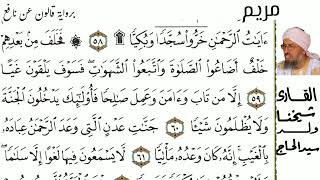 مريم
برواية قالون عن نافع
ءَايَٰتُ ٱلرَّحْمَٰنِ خَرُّوا۟ سُجَّدًا وَبُكِيًّا ۩ ٥٨ ۞ فَخَلَفَ مِنۢ بَعْدِهِمْ
خَلْفٌ أَضَاعُوا۟ ٱلصَّلَوٰةَ وَٱتَّبَعُوا۟ ٱلشَّهَوَٰتِ ۖ فَسَوْفَ يَلْقَوْنَ غَيًّا
٥٩ إِلَّا مَن تَابَ وَءَامَنَ وَعَمِلَ صَٰلِحًا فَأُو۟لَٰٓئِكَ يَدْخُلُونَ ٱلْجَنَّةَ
وَلَا يُظْلَمُونَ شَيْـًٔا ٦٠ جَنَّٰتِ عَدْنٍ ٱلَّتِي وَعَدَ ٱلرَّحْمَٰنُ عِبَادَهُۥ
بِٱلْغَيْبِ ۚ إِنَّهُۥ كَانَ وَعْدُهُۥ مَأْتِيًّا ٦١ لَّا يَسْمَعُونَ فِيهَا لَغْوًا إِلَّا سَلَٰمًا ۖ
القارئ
شيخنا
ولد
سيد الحاج